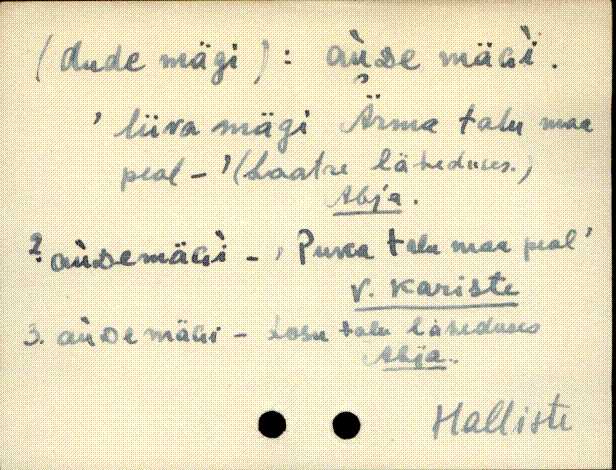 (Aude mägi): aùᴅe mäGì.
' liiva mägi Ärma talu maa
peal - ' (Laatre läheduses.)
Abja.
2. aùᴅemäGì - ' Puka talu maa peal '
V. Kariste
3. aùᴅe mäGi - Losu talu läheduses
Abja.
Halliste